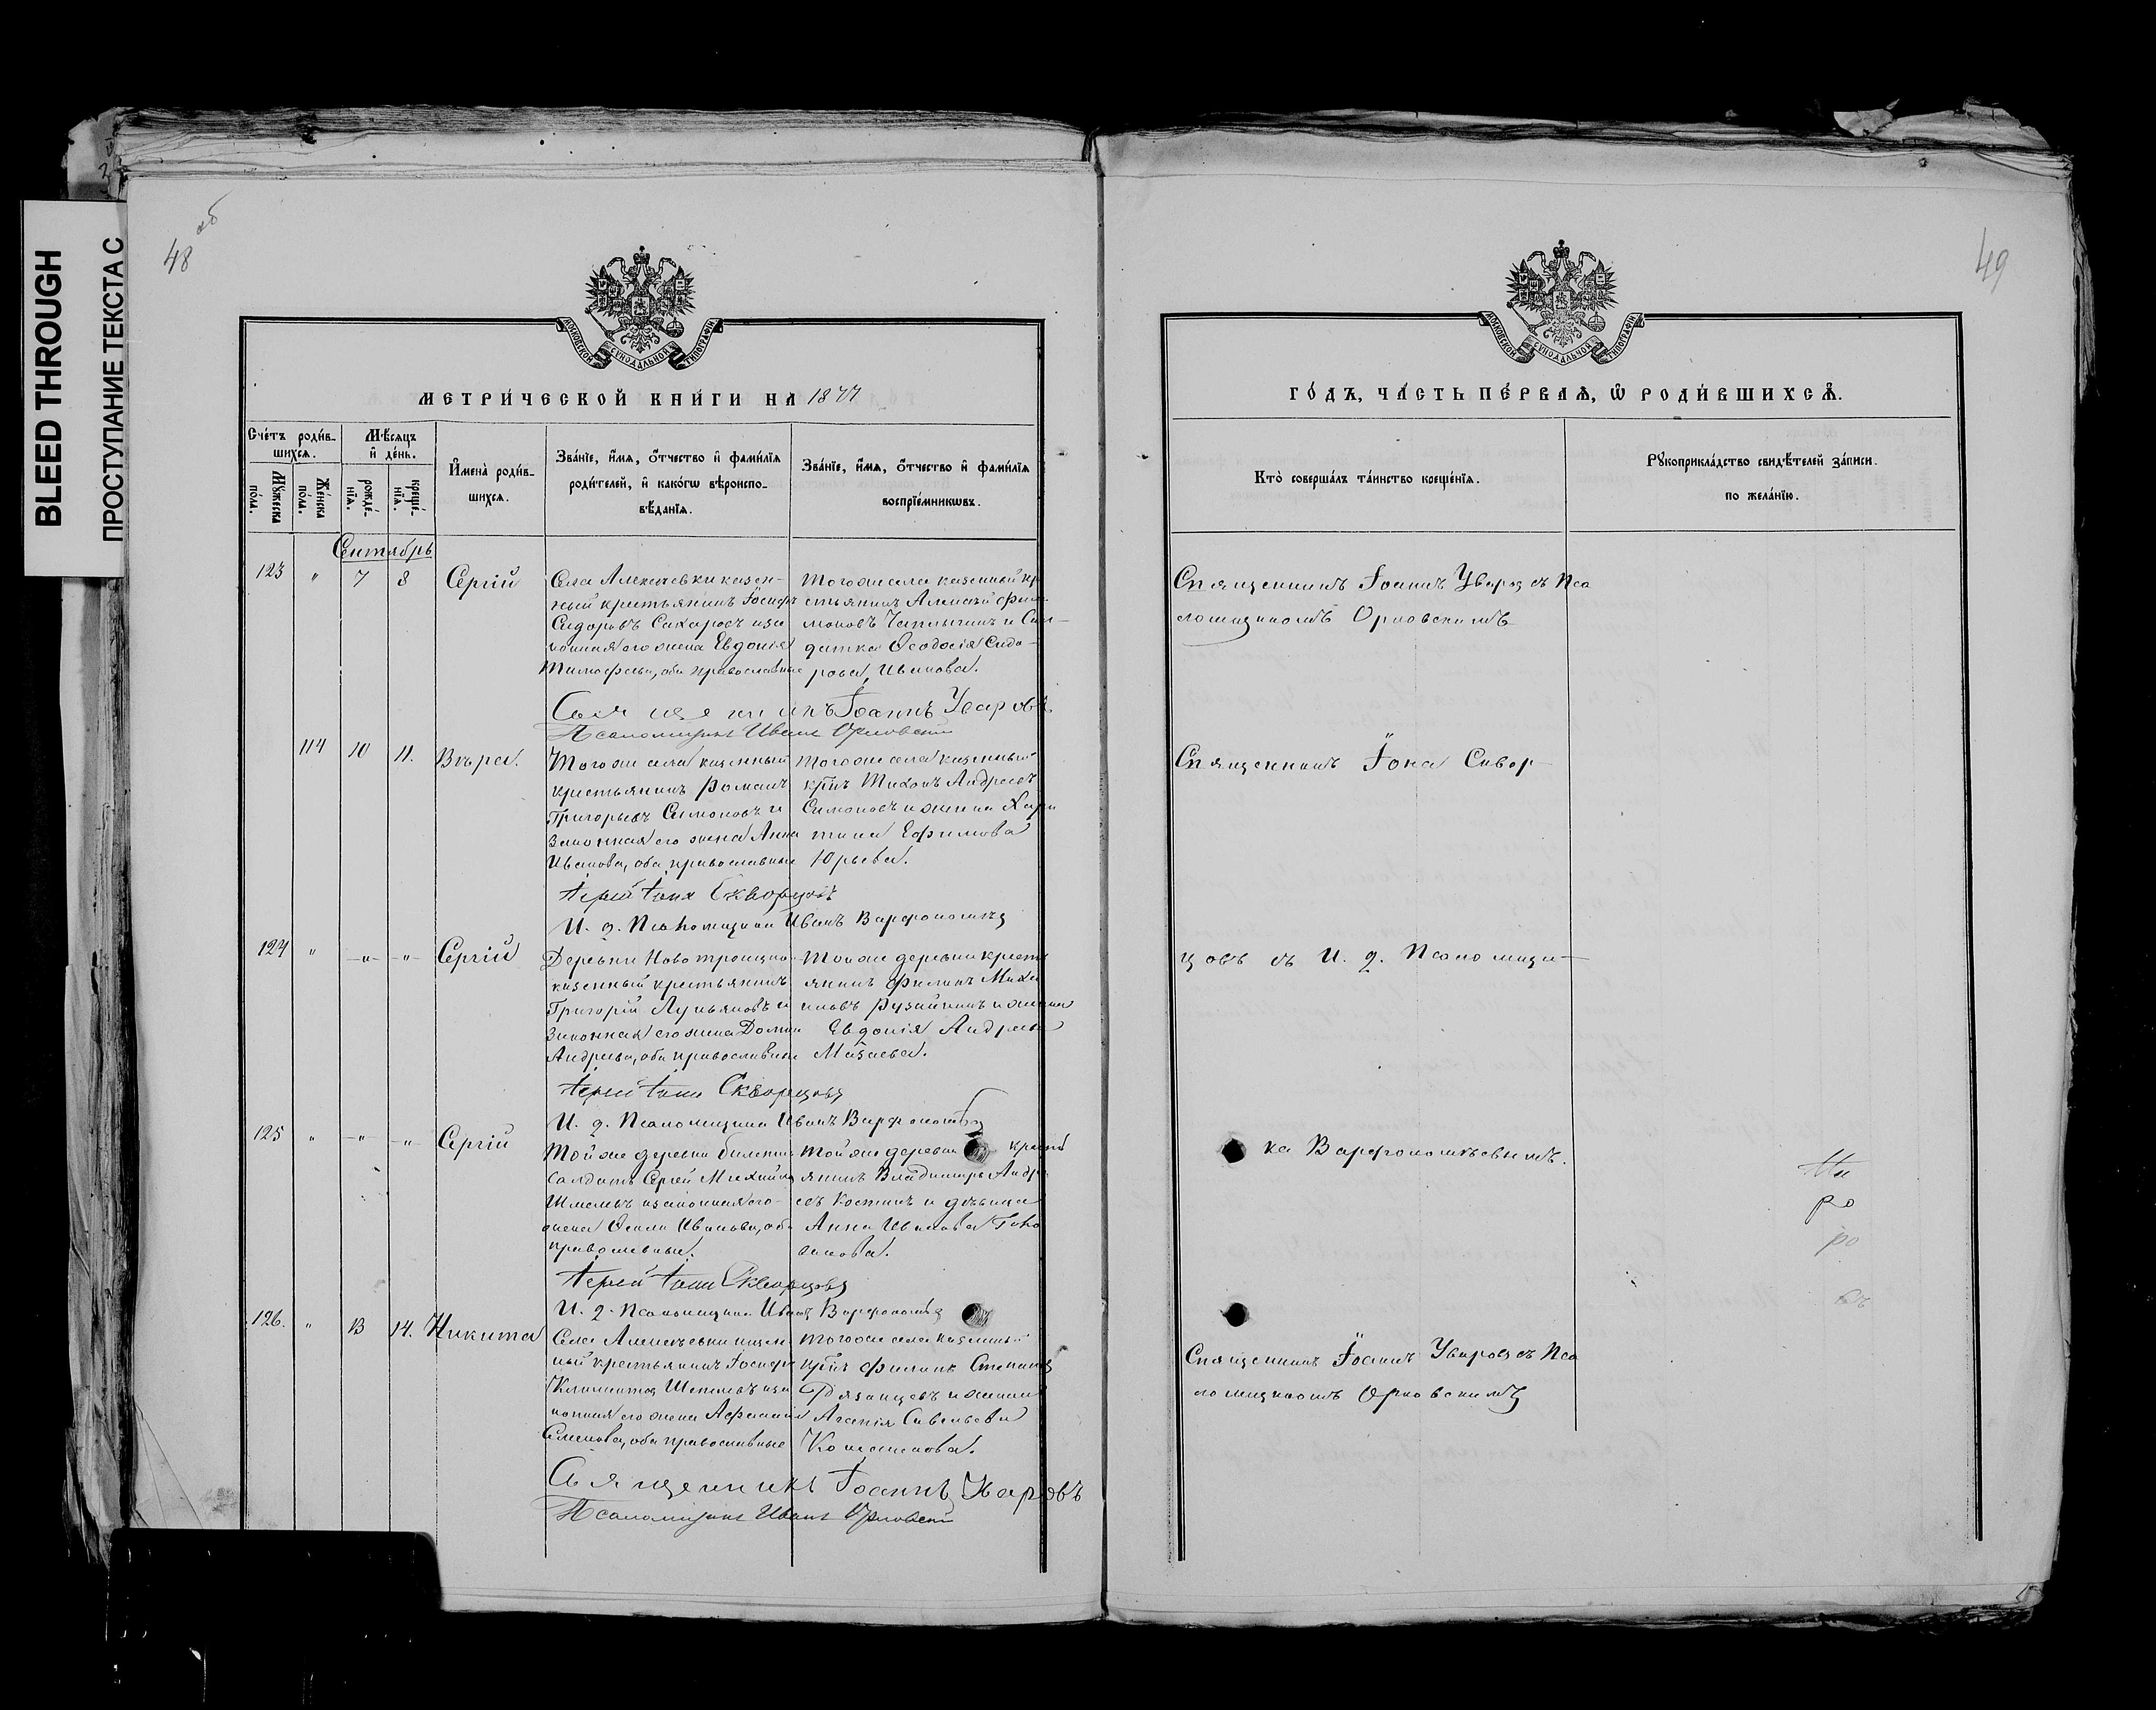 BLEED THROUGH
ПРОСТУПАНИЕ ТЕКСТА С
48 об
МОСКОВСКОЙ СѴНОДАЛЬНОЙ ТИПОГРАФІИ
МЕТРИ́ЧЕСКОЙ КНИ́ГИ НА 1877
Сче́тъ роди́в-
шихсѧ.
Мѣ́сѧцъ
и҆ де́нь.
Мꙋ́жеска
по́ла.
Же́нска
по́ла.
рожде́-
нїѧ.
креще́-
нїѧ.
И҆мена̀ роди́в-
шихсѧ.
Зва́нїе, и҆́мѧ, ѻ҆́тчество и҆ фами́лїѧ
роди́телей, и҆ како́гѡ вѣроиспо-
вѣ́данїѧ.
Зва́нїе, и҆́мѧ, ѻ҆́тчество и҆ фами́лїѧ
воспрїе́мникѡвъ.
Сентябрь
123 " 7 8 Сергій
Села Алексѣевки казен-
ный крестьянинъ Іосифъ
Сидоровъ Сахаровъ и за
конная его жена Евдокія
Тимофеева, оба православные
Тогоже села казенный кр
стьянинъ Алексѣй Фили
моновъ Чаплыгинъ и Сол-
датка Ѳеодосія Сидо-
рова, Иванова.
Священникъ Іоаннъ Уваровъ
Псаломщикъ Иванъ Орловскій
114 10 11. Вѣра.
Тогоже села казенный
крестьянинъ Романъ
Григорьевъ Симоновъ и
законная его жена Анна
Иванова, оба православные
Тогоже села казенный
кр-нъ Тихонъ Андреевъ
Симоновъ и жена Хари
тина Ефимова
Юрьева.
Іерей Іона Скворцовъ
И. д. Псаломщика Иванъ Варфоломѣевъ
124 " -"- -"- Сергій
Деревни Новотроицко
казенный крестьянинъ
Григорій Лукьяновъ и
законная его жена Домна
Андреева, оба православные
Тойже деревни кресть
янинъ Филипъ Миха
иловъ Рузайкинъ и жена
Евдокія Андреева
Мазаева.
Іерей Іона Скворцовъ
И. д. Псаломщика Иванъ Варфоломѣевъ
125 " -"- -"- Сергій
Тойже деревни билетный
солдатъ Сергей Михайловъ
и законная его
жена Иванова, оба
православные.
Тойже деревни крестъ
янинъ Владимиръ Андре
евъ Костинъ и дѣвица
Анна Иванова Голо
ванова.
Іерей Іона Скворцовъ
И. д. Псаломщика Иванъ Варфоломѣевъ
126. " 13 14. Никита
Села Алексѣевки казен
ный крестьянинъ Іосифъ
Климентов и за
конная его жена Афанасія
Семенова, оба православные
Тогоже села казенный
кр-нъ Филипъ Степановъ
Рязанцевъ и жена
Агапія Савельева
Священникъ Іоаннъ Уваровъ
Псаломщикъ Иванъ Орловскій
49
МОСКОВСКОЙ СѴНОДАЛЬНОЙ ТИПОГРАФІИ
ГО́ДЪ, ЧА́СТЬ ПЕ́РВАѦ, Ѡ҆ РОДИ́ВШИХСѦ.
Кто̀ соверша́лъ та́инство креще́нїѧ.
Рꙋкоприкла́дство свидѣ́телей за́писи.
по жела́нїю.
Священникъ Іоаннъ Уваровъ съ Пса
ломщикомъ Орловскимъ
Священникъ Іона Сквор-
цовъ съ И. д. Псаломщи-
ка Варфоломѣевымъ.
Священникъ Іоаннъ Уваровъ съ Пса
ломщикомъ Орловскимъ
ро
ро
въ